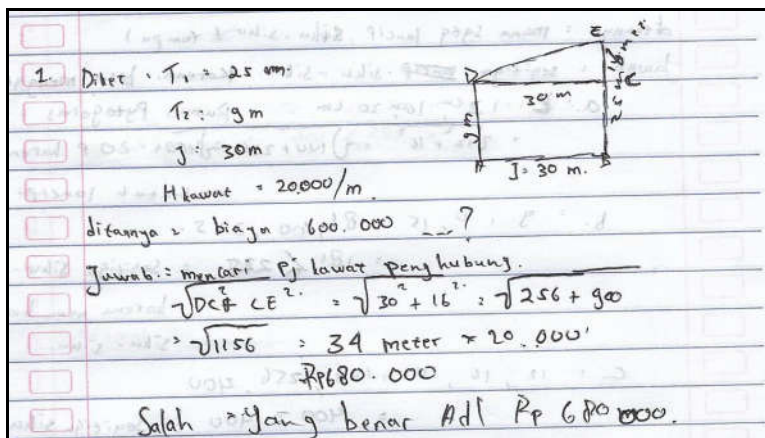 1. Diket : T₁ = 25 m
T₂ = 9 m
J = 30 m
H kawat = 20.000/m
ditannya = biaya 600.000 ---?
Jawab := mencari Pj kawat penghubung.
√DC² + CE² = √30² + 16² = √256 + 900
= √1156 = 34 meter × 20.000
Rp680.000
Salah = yang benar Adl Rp 680 000.
E
D
30 m
C
16 m
25 m
9 m
A
J = 30 m.
B